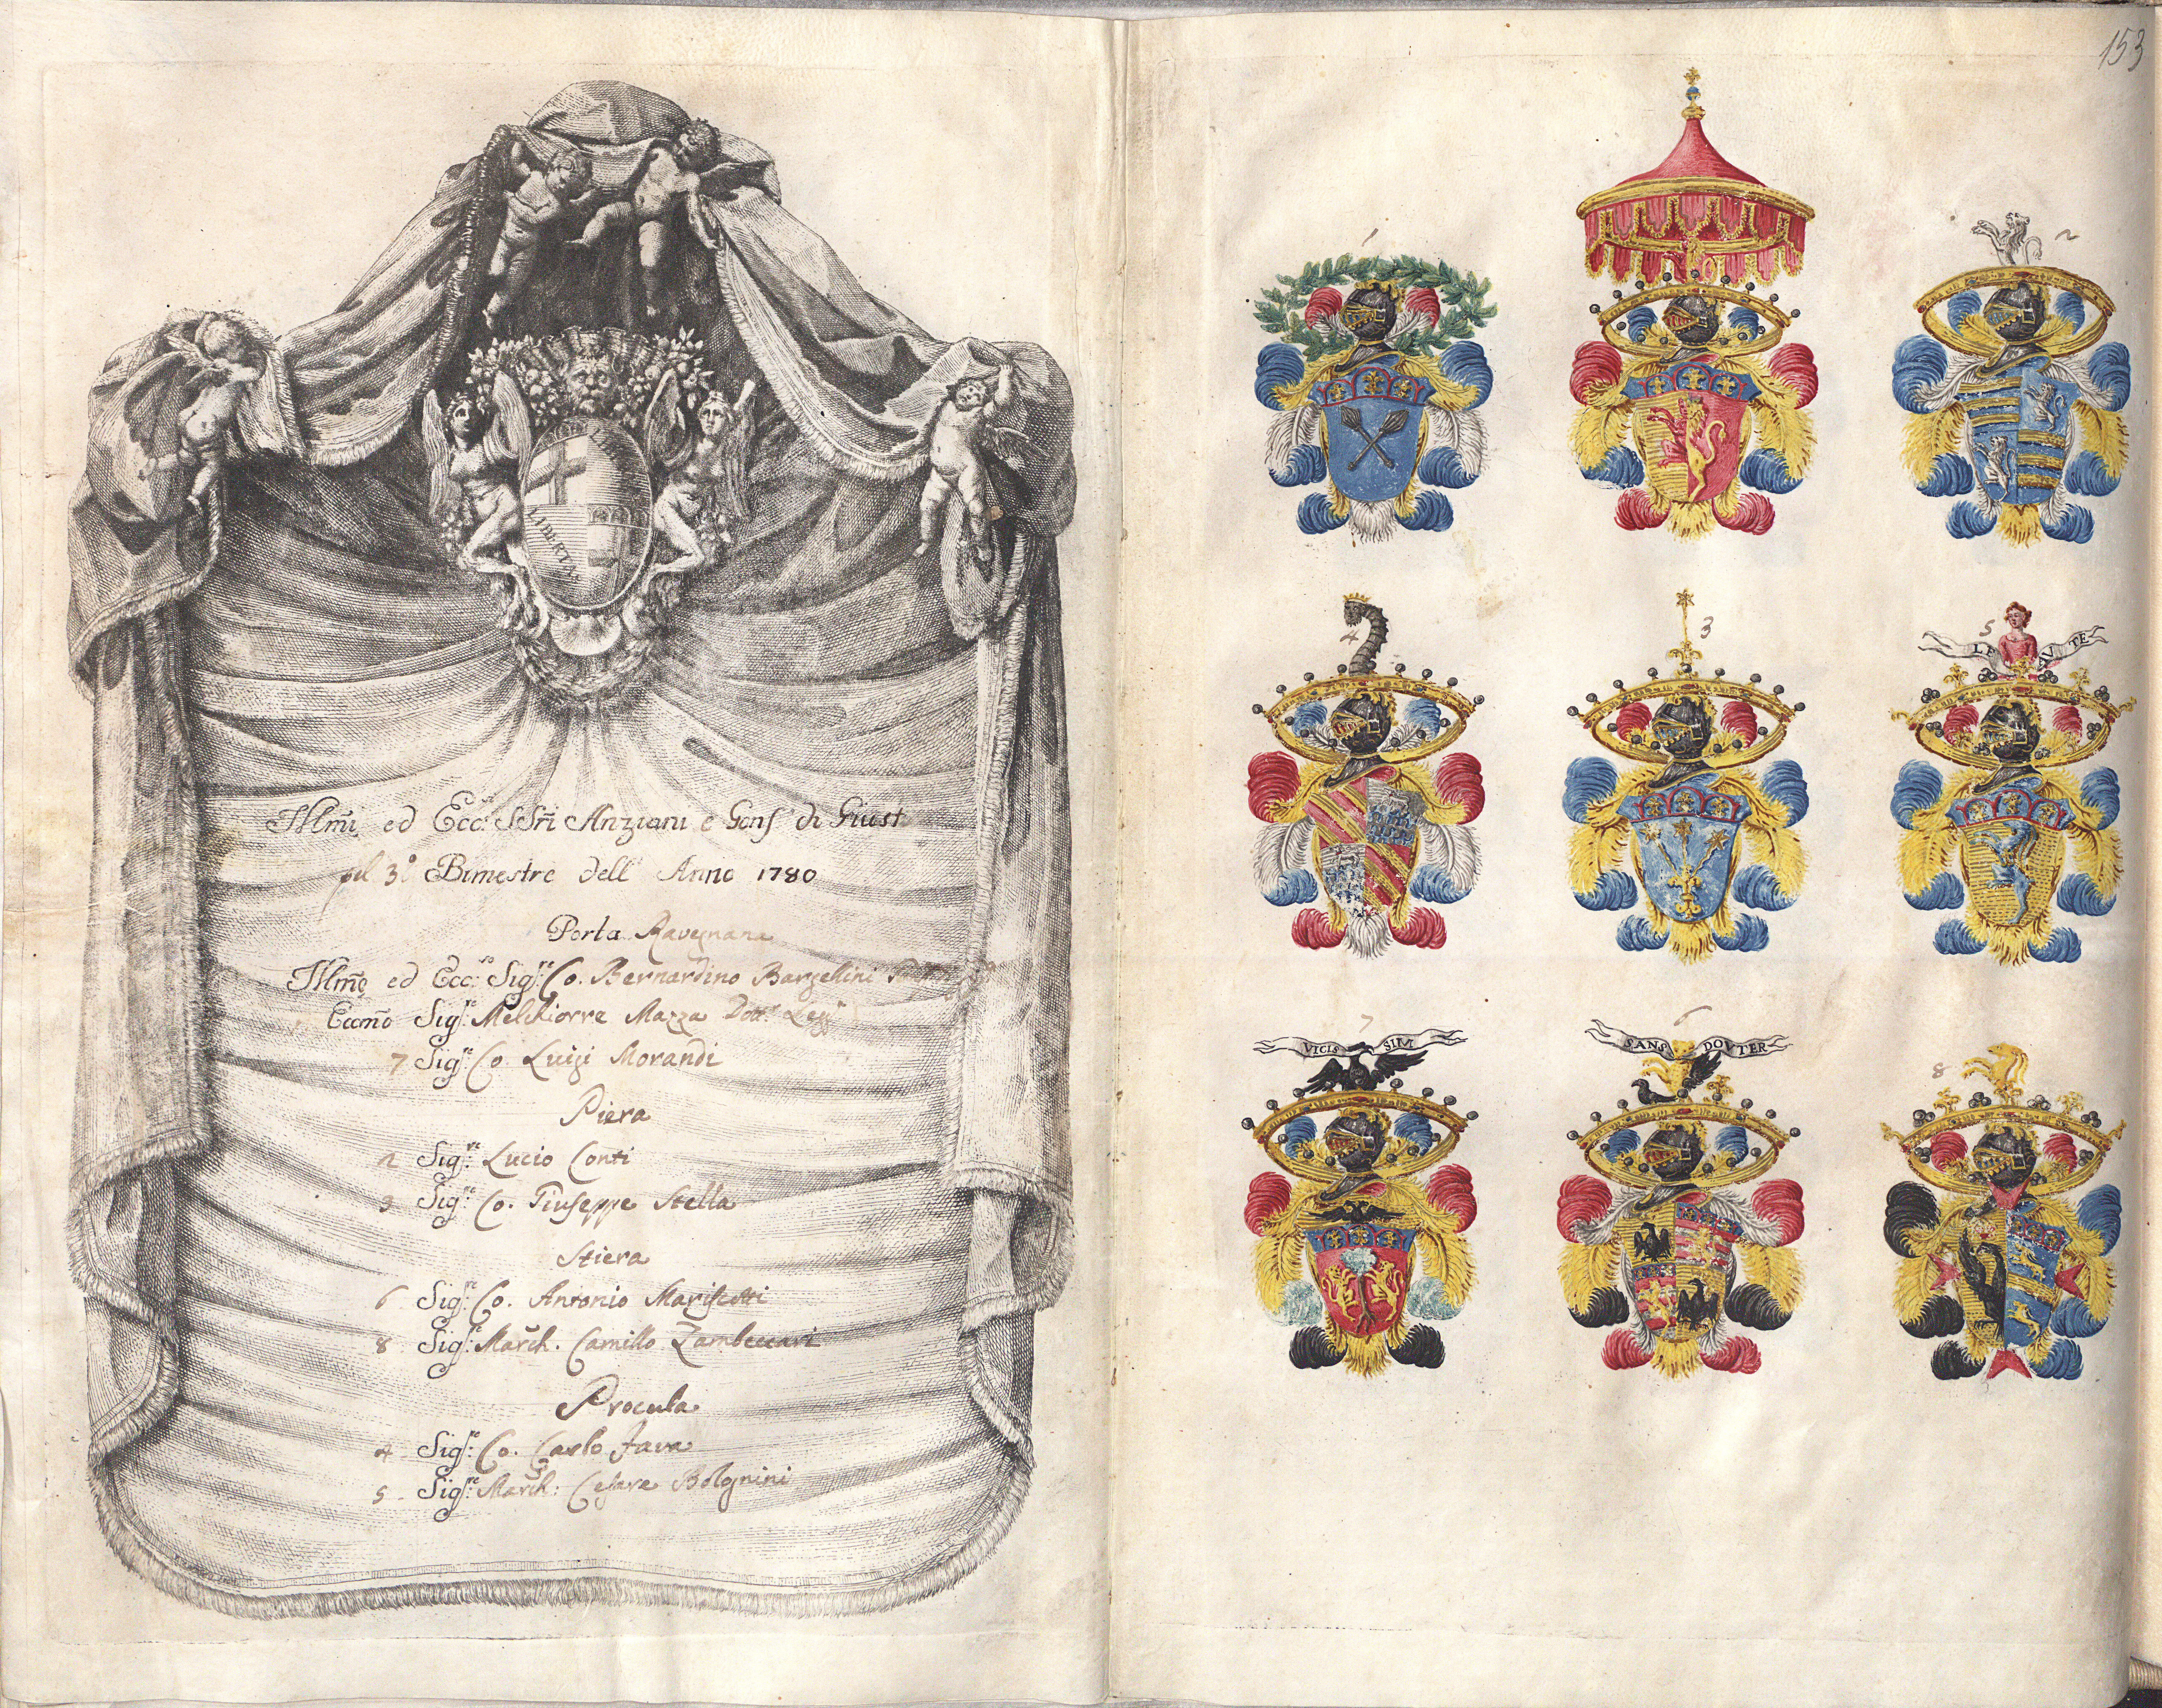 LIBERTAS
Illmi ed Ecc.si SSri Anziani e Gonf di Giust
pel 3.o Bimestre dell' Anno 1780
Porta Ravegnana
Illmo ed Ecc.so Sig.re Co. Bernardino Bargellini
Eccmo Sig.re Melchiorre Mazza Dott. Legg.
7 Sig.re Co. Luigi Morandi
Piera
2 Sig.re Lucio Conti
3 Sig.re Co. Giuseppe Stella
Stiera
6 Sig.re Co. Antonio Mariscotti
8 Sig.re March. Camillo Zambeccari
Procula
4 Sig.re Co. Carlo Fava
5 Sig.re March: Cesare Bolognini
153
1
2
4
3
5
LE AVTE
7
VICIS SIM
6
SANS DOVTER
8